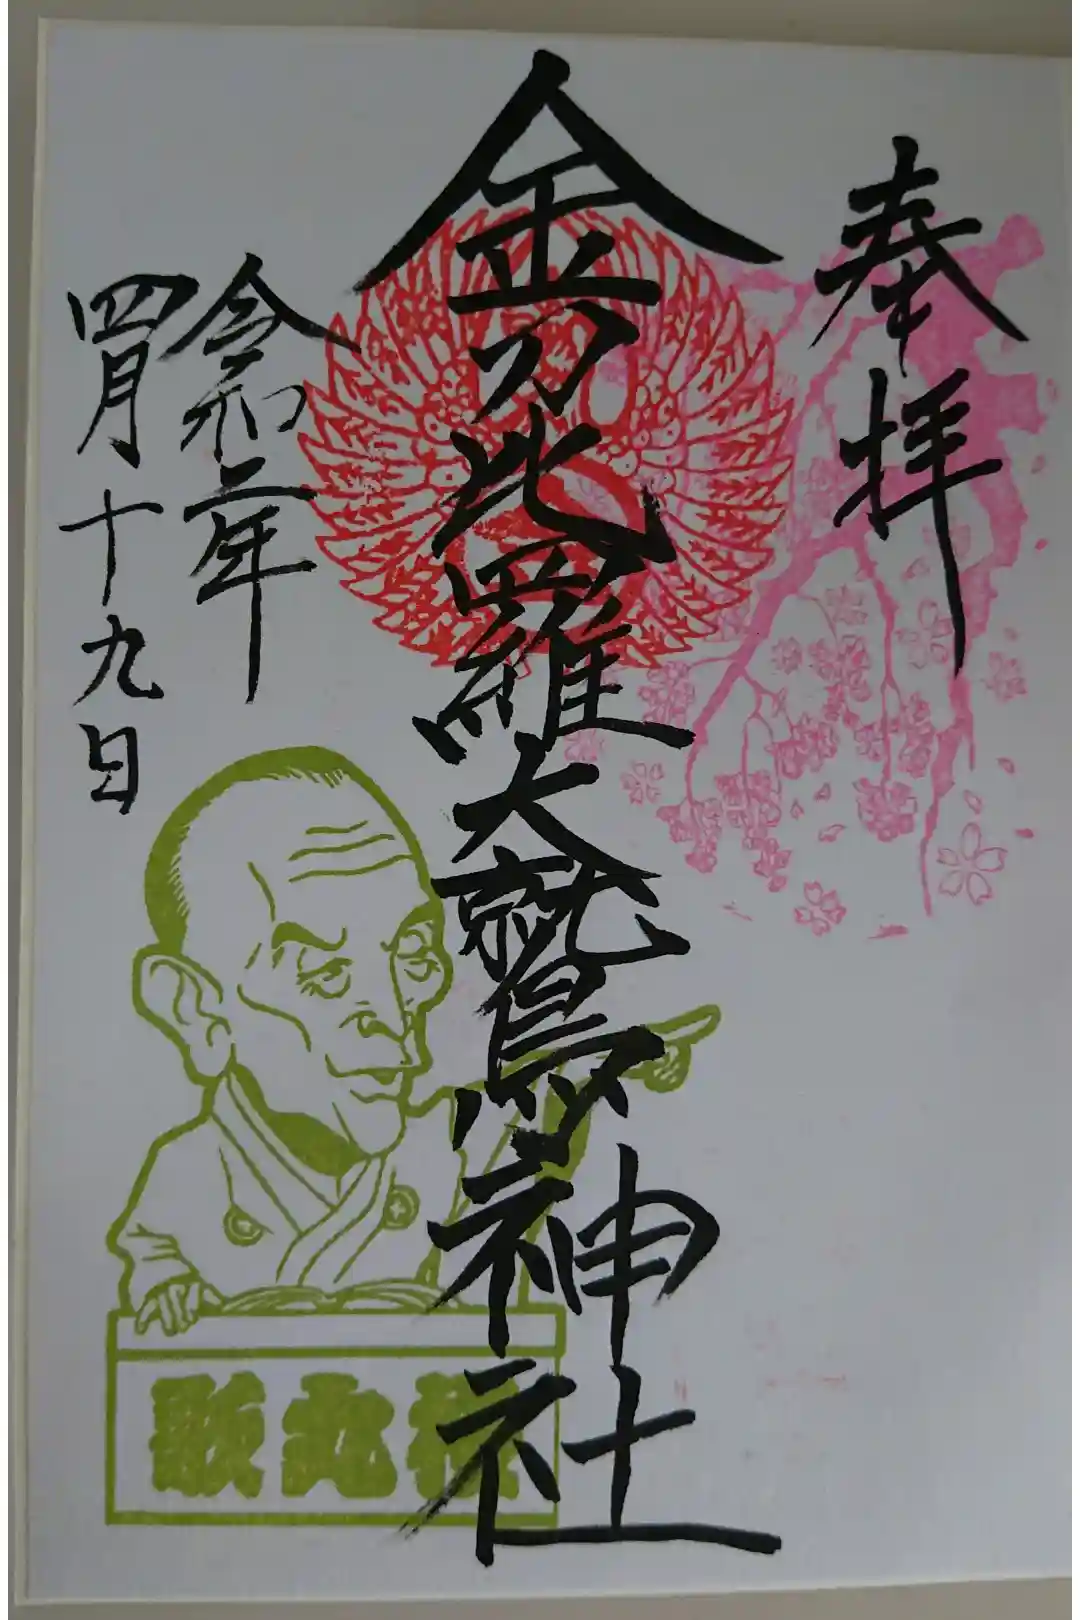 奉拝
金刀比羅大鷲神社
令和二年
四月十九日